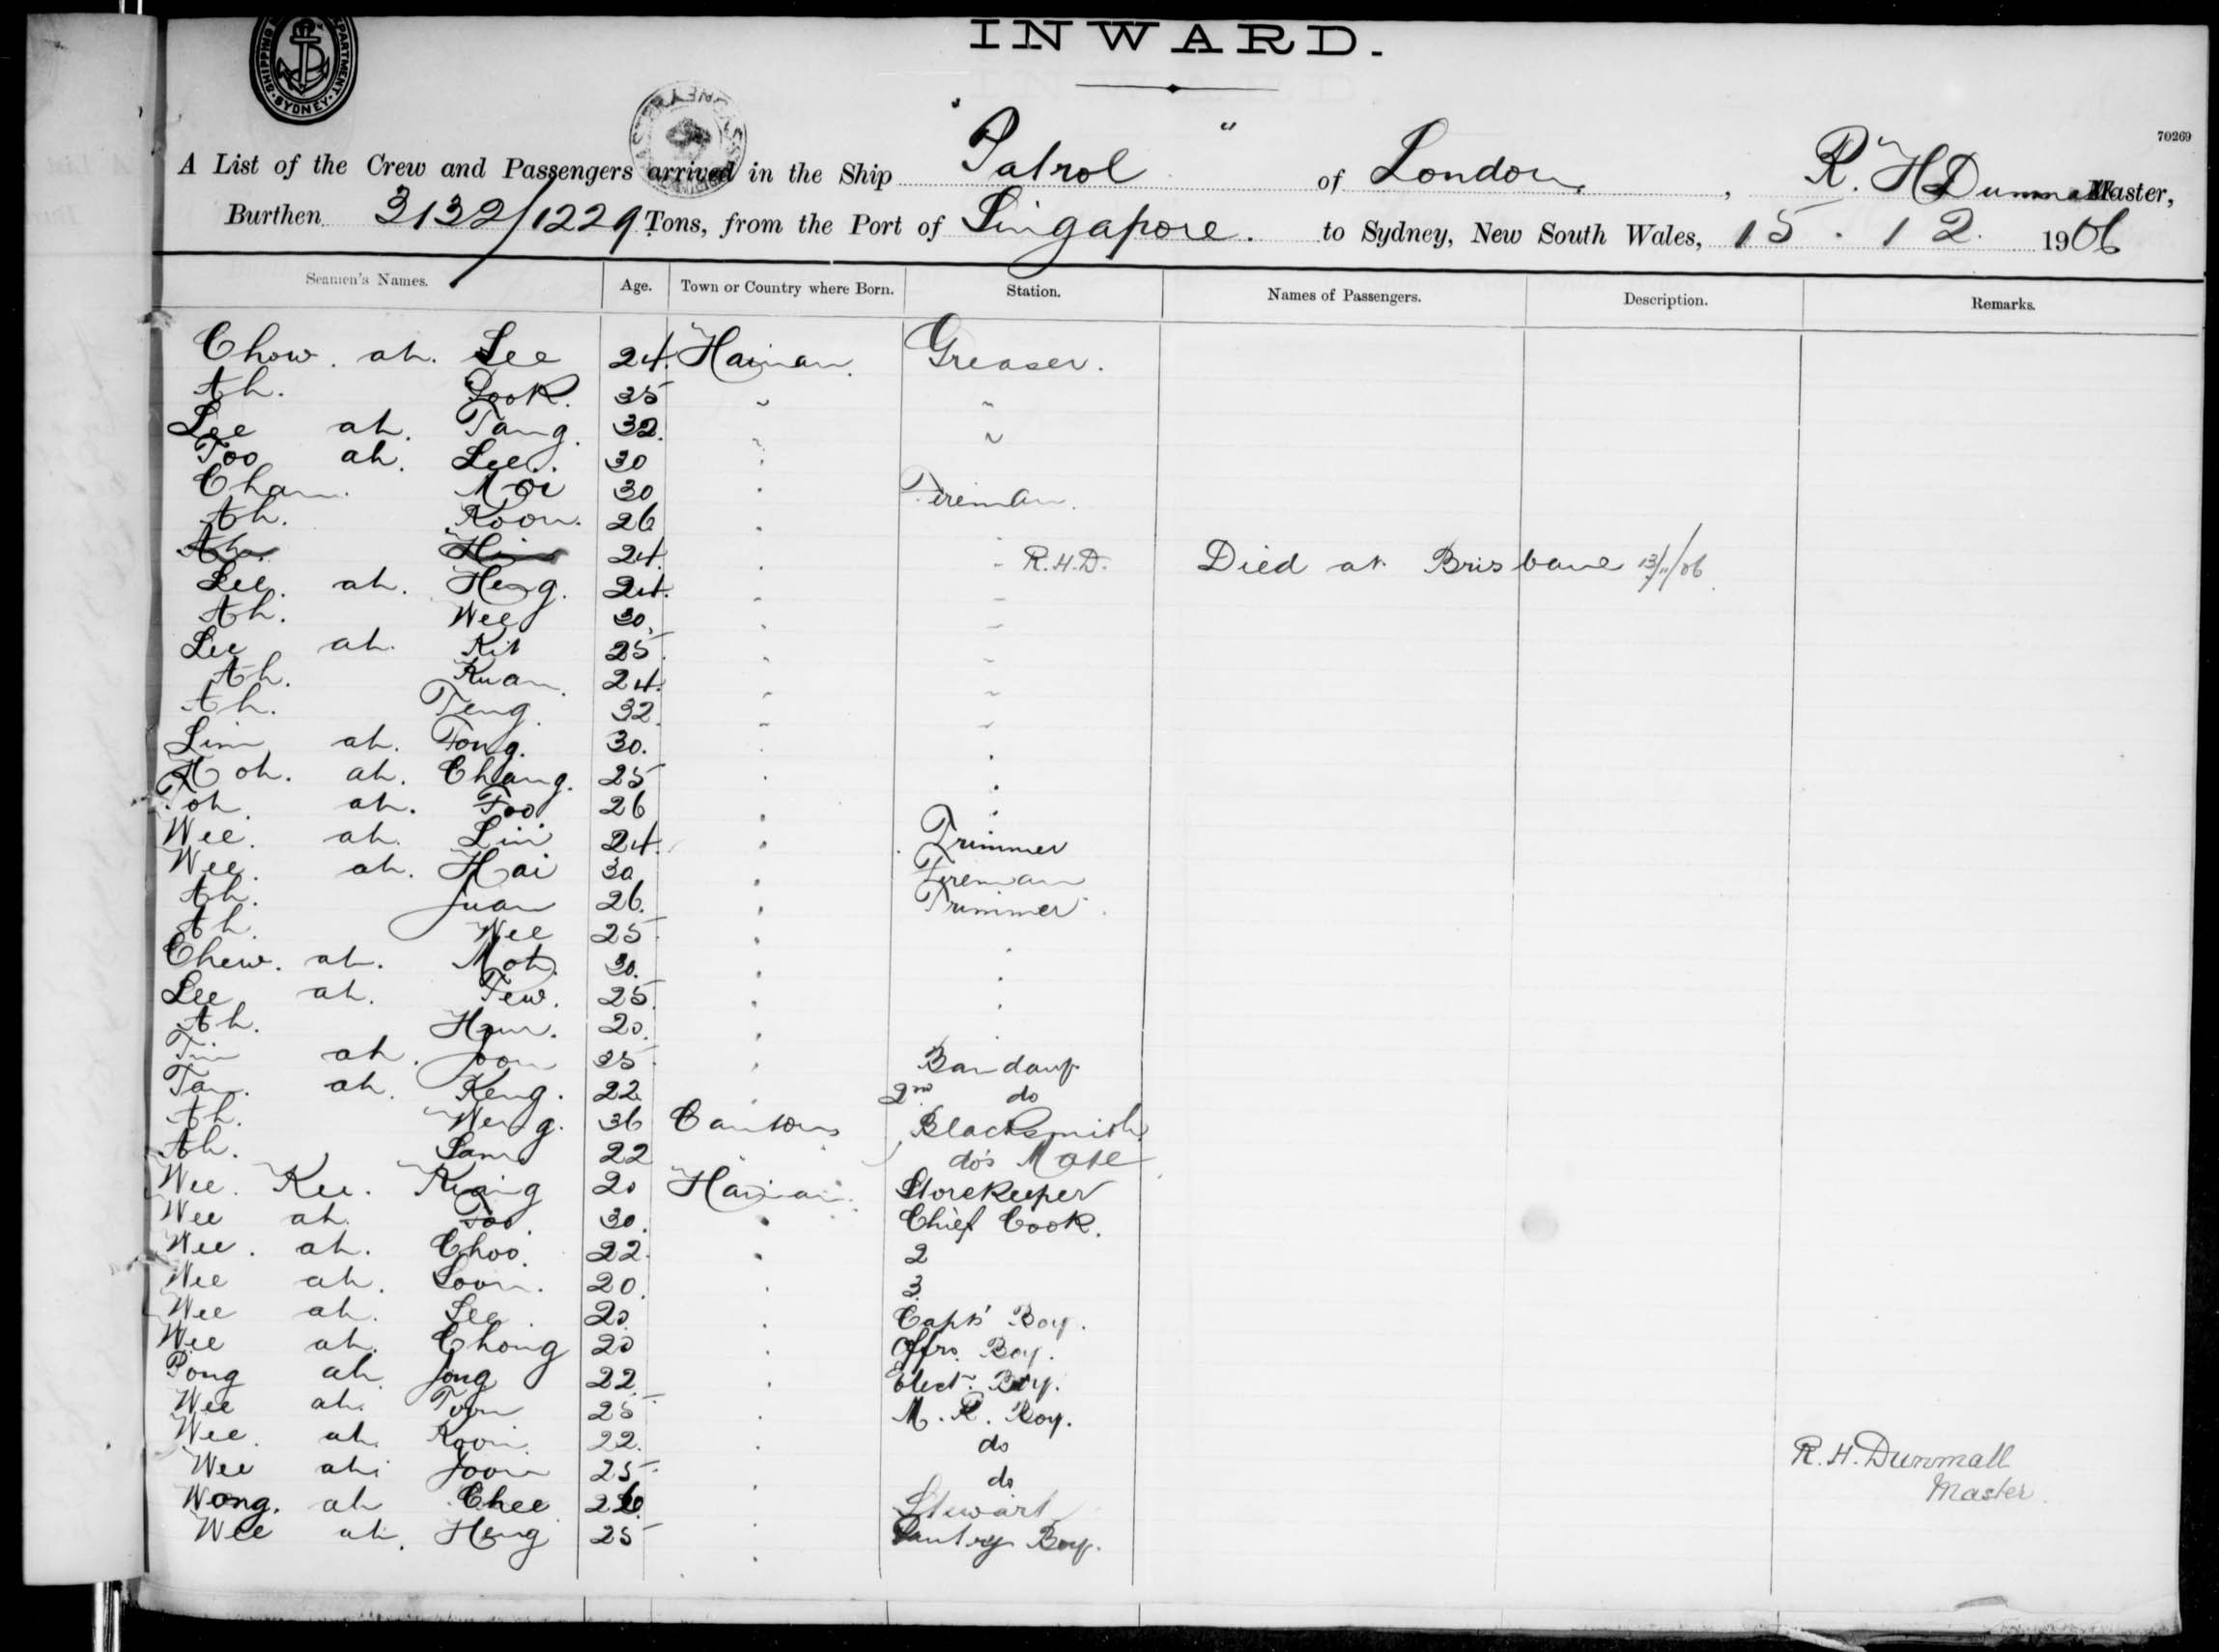 INWARD.
SHIPPING DEPARTMENT SYDNEY
70269
A List of the Crew and Passengers arrived in the Ship "Patrol" of London, R. H Dunmall Master,
Burthen 3132/1229 Tons, from the Port of Singapore. to Sydney, New South Wales, 15.12.1906
Seamen's Names. Age. Town or Country where Born. Station. Names of Passengers. Description. Remarks.
Chow. ah. Lee 24. Hainan. Greaser.
Ah. Sook. 35 " "
Lee ah. Tang. 32. " "
Foo ah. Lee. 30 "
Cham. Moi 30 " Fireman.
Ah. Koon. 26 "
Ah. 24. " " R.H.D. Died at Brisbane 13/11/06.
Lee. ah. Heng. 24. " "
Ah. Wee 30. " "
Lee ah. Kit 25. " "
Ah. Kuan. 24. " "
Ah. Teng. 32. " "
Lim ah. Fong. 30. " "
Koh. ah. Chang. 25 " "
Toh. ah. Foo 26 " "
Wee. ah. Lim 24. " Trimmer
Wee. ah. Hai 30 " Fireman
Ah. Juan 26. " Trimmer
Ah. Wee 25. " "
Chew. ah. Moh. 30. " "
Lee ah. Tew. 25. " "
Ah. 20. " "
ah. Joon 35. " Bandary
Tan. ah. Keng. 22. " 2nd do
Ah. Weng. 36 Canton Blacksmith
Ah. Sam 22 do's Mate
Wee. Kee. Kiang 20 Hainan. Storekeeper
Wee ah. Foo 30. " Chief Cook.
Wee. ah. Choo. 22. " 2
Wee ah. Soon. 20. " 3
Wee ah. See 20. " Capts' Boy.
Wee ah. Chong 20 " Offrs. Boy.
Pong ah. Jong 22. " Elect. Boy.
Wee ah. Toon 25. " M. R. Boy.
Wee. ah. Koon. 22. " do
Wee ah. Joon 25. " do
Wong. ah Chee " Stewart
Wee ah. Heng 25 " Pantry Boy.
R. H. Dunmall
Master.